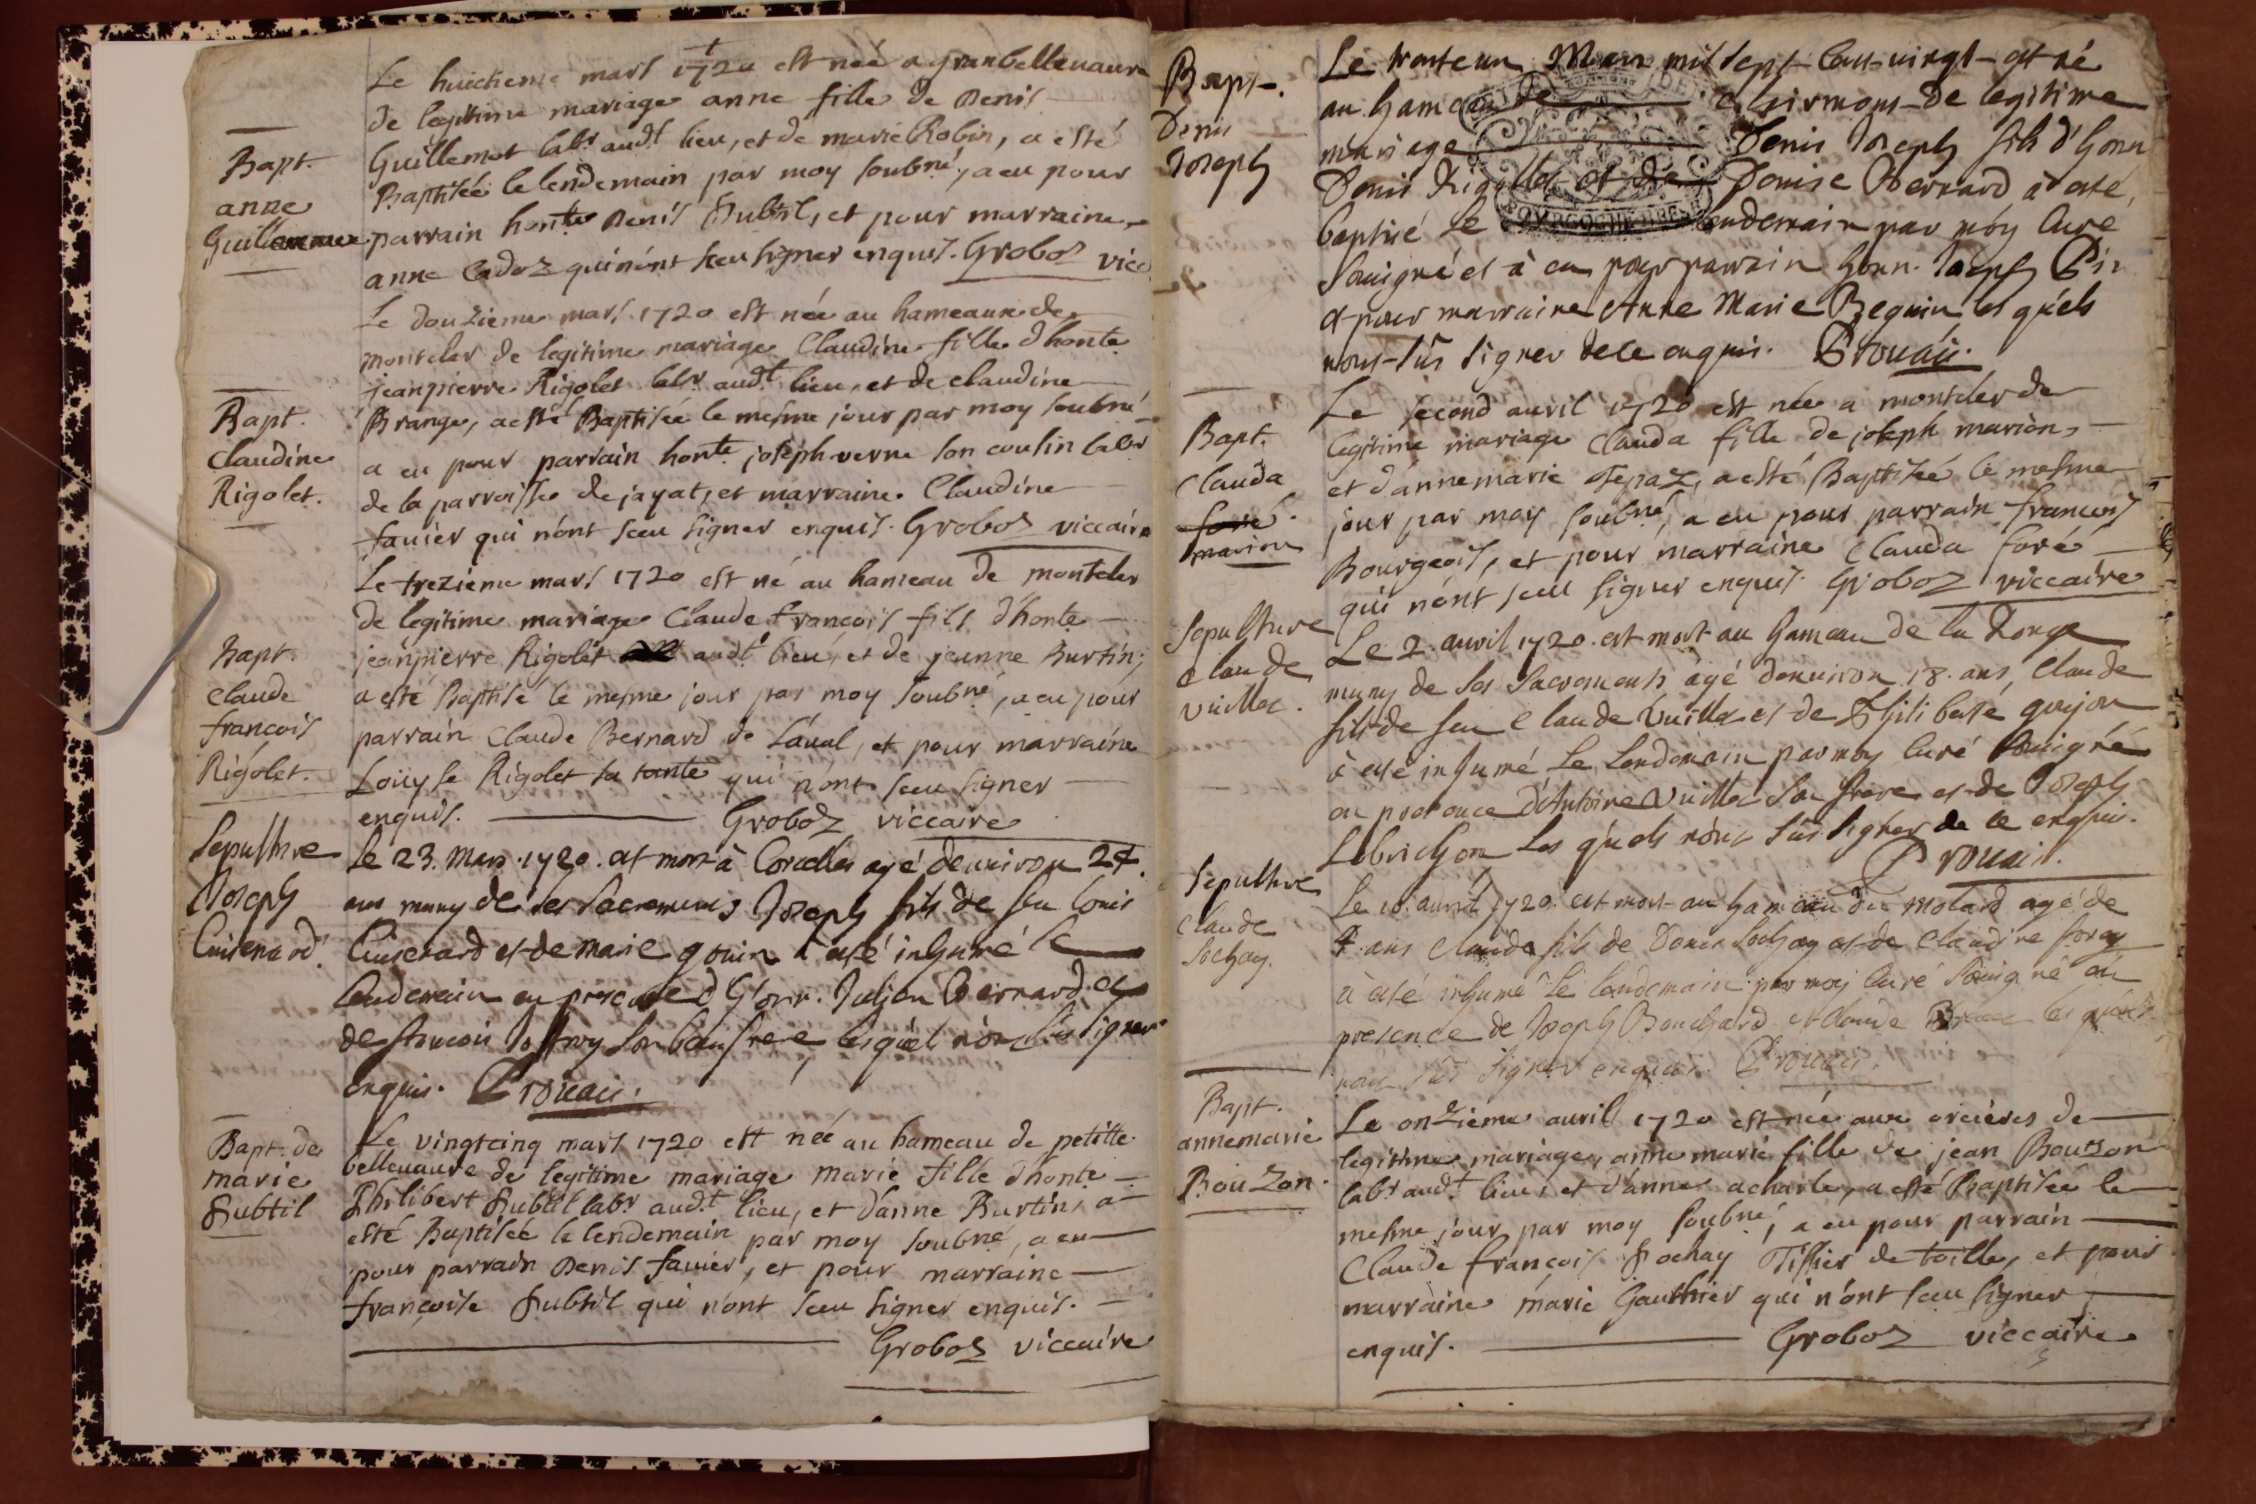 Le huictieme mars 1720 est née a granbellevaure
de legitime mariage anne fille de Denis
Bapt.
anne
Guillemot labr. audt. lieu, et de marie Robin, a esté
Baptisée le lendemain par moy soubné, a eu pour
parrain honte Denis Subtil, et pour marraine
anne Cadoz qui n'ont sceu signer enquis. Groboz vicc
Le douzieme mars 1720 est née au hameaux de
montcler de legitime mariage Claudine fille d'honte
jeanpierre Rigolet labr audt. lieu, et de claudine
Bapt.
Claudine
Rigolet.
Brange, a esté Baptisée le mesme jour par moy soubné
a eu pour parrain honte. joseph verne son cousin labr
de la parroisse de jayat, et marraine Claudine
favier qui n'ont sceu signer enquis. Groboz viccaire
Le trezieme mars 1720 est né au hameau de montcler
de legitime mariage Claude francois fils d'honte
Bapt.
Claude
francois
Rigolet.
jeanpierre Rigolet audt lieu, et de jeanne Burtin;
a esté Baptisé le mesme jour par moy soubné, a eu pour
parrain Claude Bernard de Laval, et pour marraine
Louyse Rigolet sa tante qui n'ont sceu signer
enquis. Groboz viccaire
Sepulture
Joseph
Cuisenard.
Le 23. Mars. 1720. est mort à Corcelles agé d'environ 24.
ans muny de ses sacremens Joseph fils de feu Louis
Cuisenard et de Marie gouin à esté inhumé le
lendemain en presence d'honn. Julien Bernard et
de francois Joffray son beaufrere, lesquel n'ont sus signer
enquis. Prouain.
Bapt. de
marie
Subtil
Le vingtcinq mars 1720 est née au hameau de petitte
bellevaure de legitime mariage marie fille d'honte
Philibert Subtil labr audt. lieu, et d'anne Burtin, a
esté Baptisée le lendemain par moy soubné, a eu
pour parrain Denis favier, et pour marraine
francoise Subtil qui n'ont sceu signer enquis.
Groboz viccaire
Bapt.
Denis
Joseph
Le trente un Mars mil sept cens vingt est né
au hameau de Chirmons de legitime
mariage Denis Joseph fils d'honn
Denis Rigollet et de Denise Bernard à esté
baptisé le lendemain par moy Curé
Souigné et à eu pour parrain honn. Joseph Pin
et pour marraine Anne Marie Beguin lesquels
n'ont sûs signer de ce enquis. Prouain.
Bapt.
Clauda
foré
marion
Le second avril 1720 est née a montcler de
legitime mariage Clauda fille de joseph marion,
et d'annemarie Tepaz, a esté Baptisée le mesme
jour par moy soubné, a eu pour parrain francois
Bourgeois, et pour marraine Clauda foré
qui n'ont sceu signer enquis. Groboz viccaire
Sepulture
Claude
Vuillot.
Le 2. avril 1720. est mort au hameau de la
muny de ses Sacremens agé d'environ 18. ans, Claude
fils de feu Claude Vuillot et de Philiberte goujon
à esté inhumé le lendemain par moy Curé Souigné
en presence d'Antoine Vuillot son frere et de Joseph
Lebrichon lesquels n'ont sûs signer de ce enquis.
Prouain.
Sepulture
Claude
Sochay.
Le 10. avril 1720. est mort au hameau du Molard agé de
4. ans Claude fils de Denis Sochay et de Claudine foray
à esté inhumé le lendemain par moy Curé Souigné en
presence de Joseph Bouchard et Claude lesquels
n'ont sûs signer enquis. Prouain.
Bapt.
annemarie
Bouzon.
Le onzieme avril 1720 est née aux orcieres de
legitime mariage, anne marie fille de jean Bouzon
labr audt. lieu, et d'anne acharle, a esté Baptisée le
mesme jour par moy soubné, a eu pour parrain
Claude francois Sochay Tissier de toille, et pour
marraine marie Gauthier qui n'ont sceu signer
enquis. Groboz viccaire